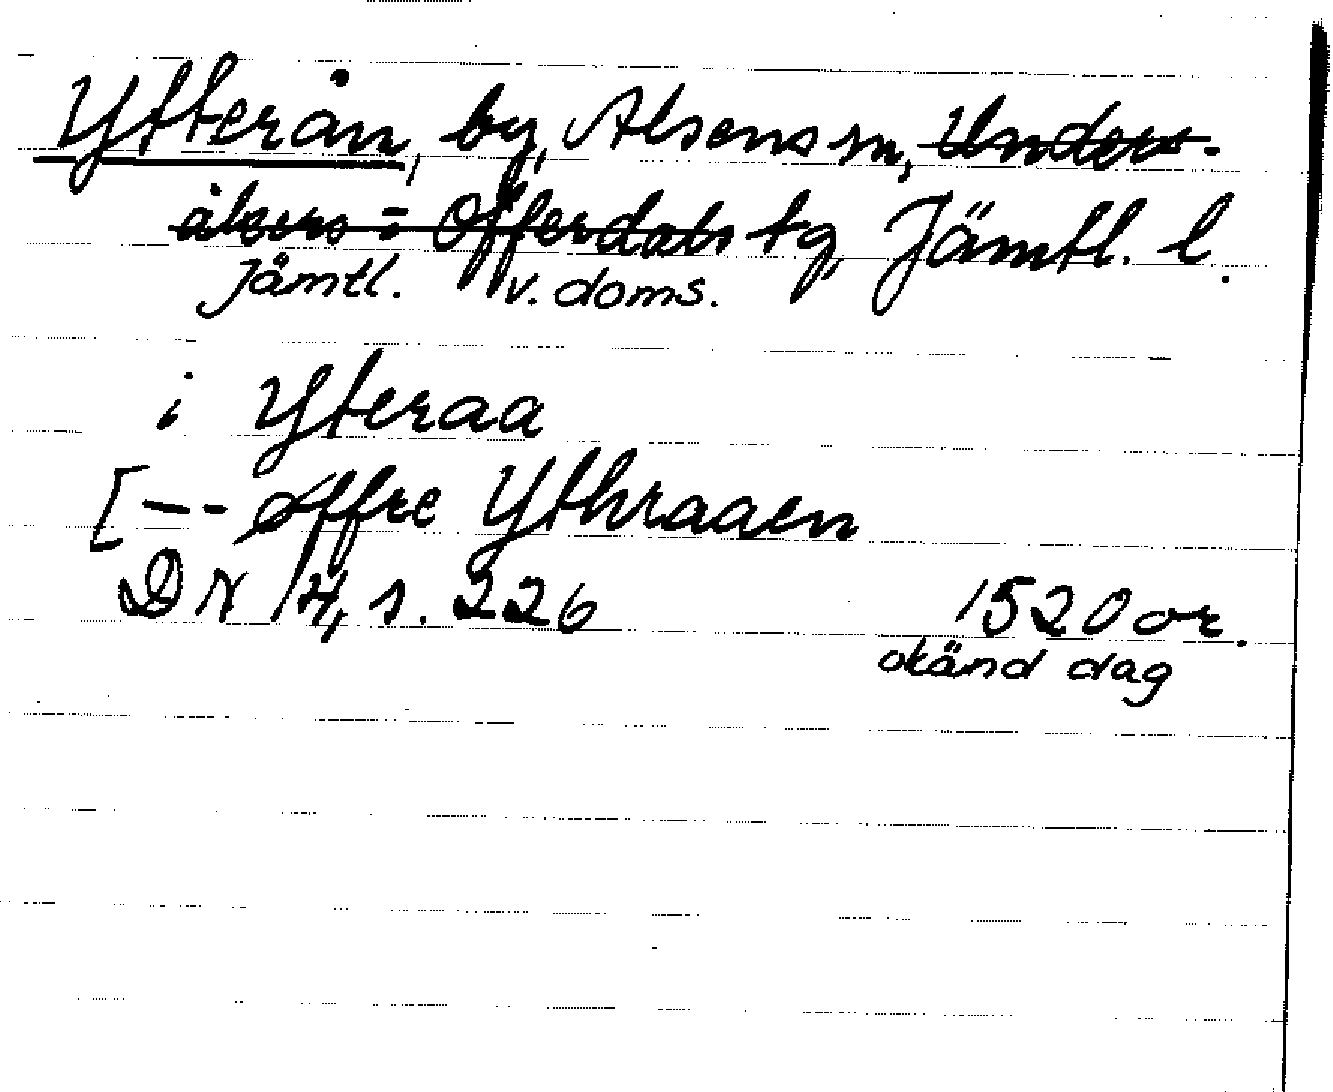 Ytterån, by, Alsens sn, Under-
åkers - Offerdals tg, Jämtl. l.
Jämtl. v. doms.
i Yteraa
[-- øffre Ythraaen
DN 14, s. 226 1520 or.
okänd dag